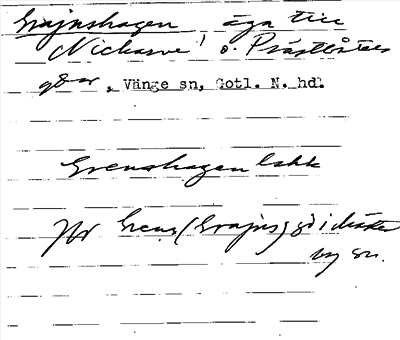 Grajnshagen, äga till
Nickarve o. Prästlåtar
gbar, Vänge sn, Gotl. N. hd.
Grenshagen lskk
Jfr Grens (Grajns) gd i
by sn.